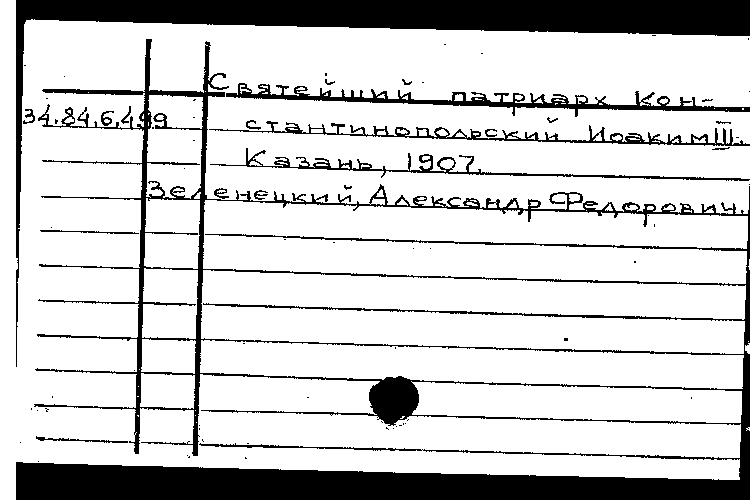 Святейший патриарх Кон-
34.84.6.499 стантинопольский Иоаким III.
Казань, 1907.
Зеленецкий, Александр Федорович.